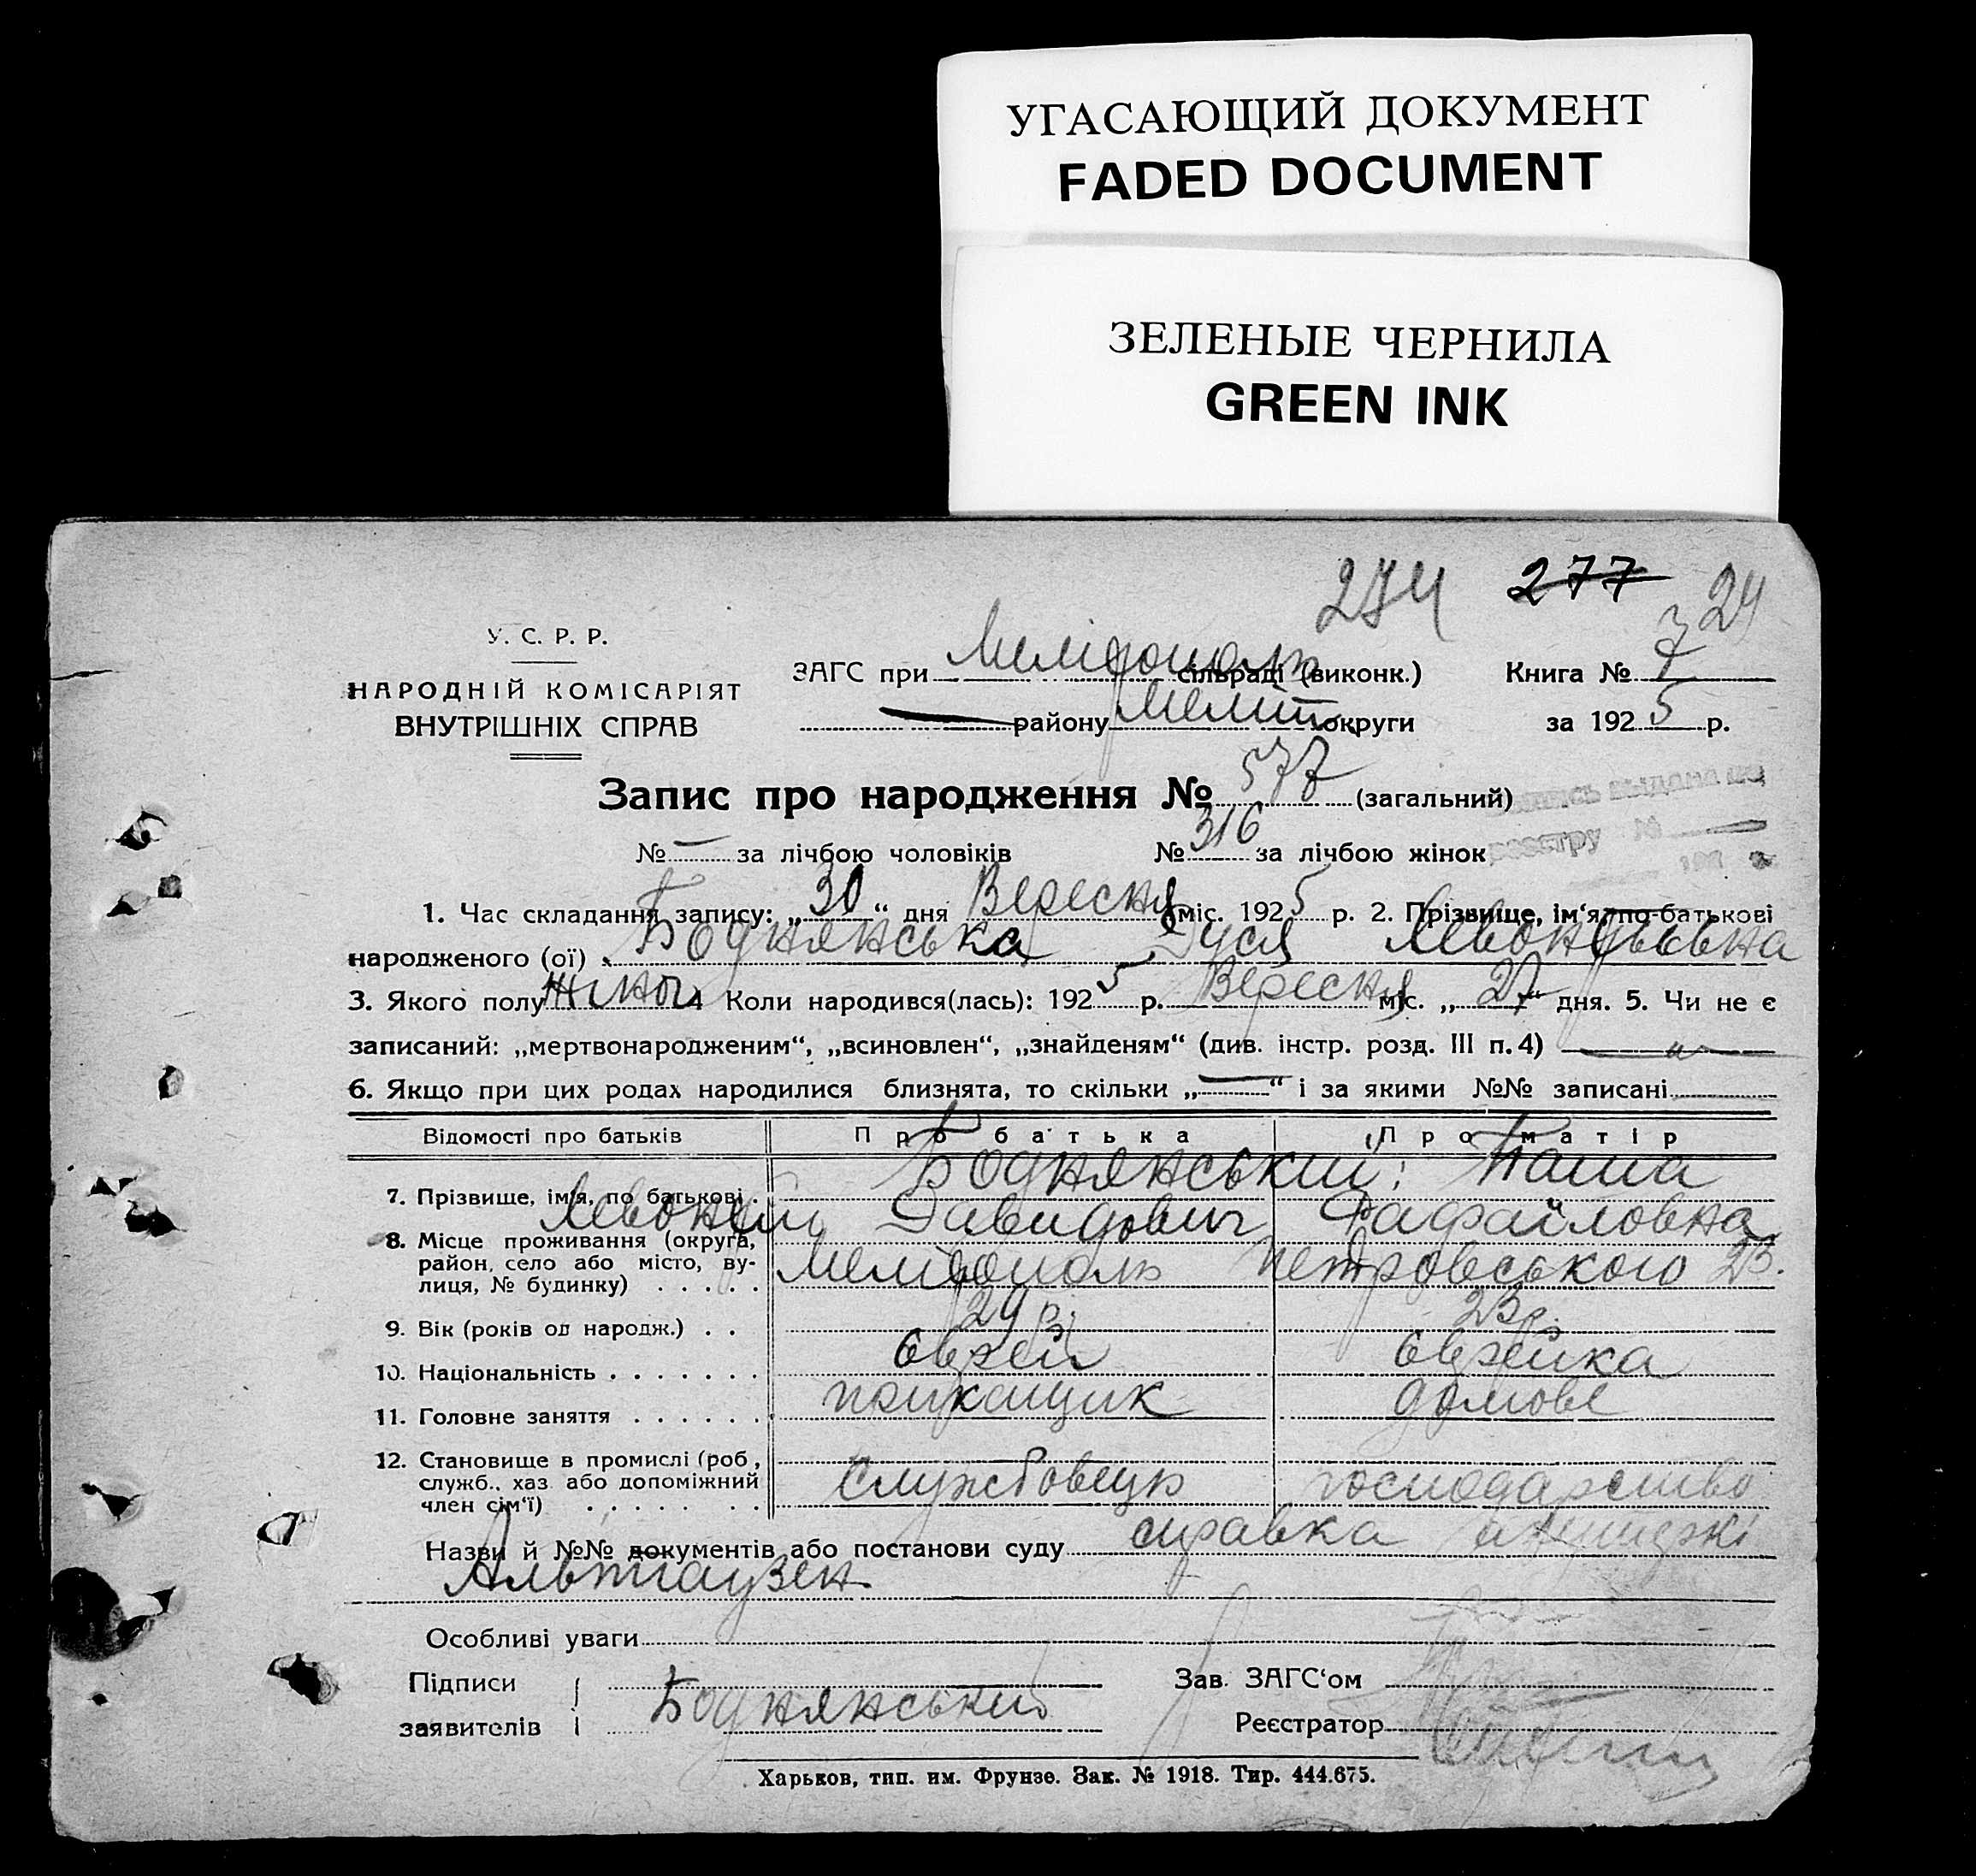 УГАСАЮЩИЙ ДОКУМЕНТ
FADED DOCUMENT
ЗЕЛЕНЫЕ ЧЕРНИЛА
GREEN INK
274 277 24
У. С. Р. Р.
НАРОДНІЙ КОМІСАРІЯТ
ВНУТРІШНІХ СПРАВ
ЗАГС при Мелітополь сільраді (виконк.) Книга № 7
району Меліт. округи за 1925 р.
Запис про народження № 577 (загальний)
№ — за лічбою чоловіків № 316 за лічбою жінок
выдана
реестру №
1. Час складання запису: „30“ дня Вересня міс. 1925 р. 2. Прізвище, ім'я, по-батькові
народженого (ої) Боднянська Дуся
3. Якого полу жіноч. 4 Коли народився(лась): 1925 р. Вересня міс. „27“ дня. 5. Чи не є
записаний: „мертвонародженим“, „всиновлен“, „знайденям“ (див. інстр. розд. III п. 4) —
6. Якщо при цих родах народилися близнята, то скільки „—“ і за якими №№ записані
Відомості про батьків Про батька Про матір
7. Прізвище, ім'я, по батькові Боднянський; Паша
Давидович Рафаіловна
8. Місце проживання (округа, район, село або місто, ву-
лиця, № будинку) Мелітополь Петровського 23.
9. Вік (років од народж.) 29 р. 23 р.
10. Національність Єврей Єврейка
11. Головне заняття прикащик домове
12. Становище в промислі (роб.,
служб., хаз або допоміжний
член сім'ї) Службовець господарство
Назви й №№ документів або постанови суду справка акушерки
Альтгаузен
Особливі уваги
Підписи Зав. ЗАГС'ом
заявителів Боднянський Реєстратор
Харьков, тип. им. Фрунзе. Зак. № 1918. Тир. 444.675.